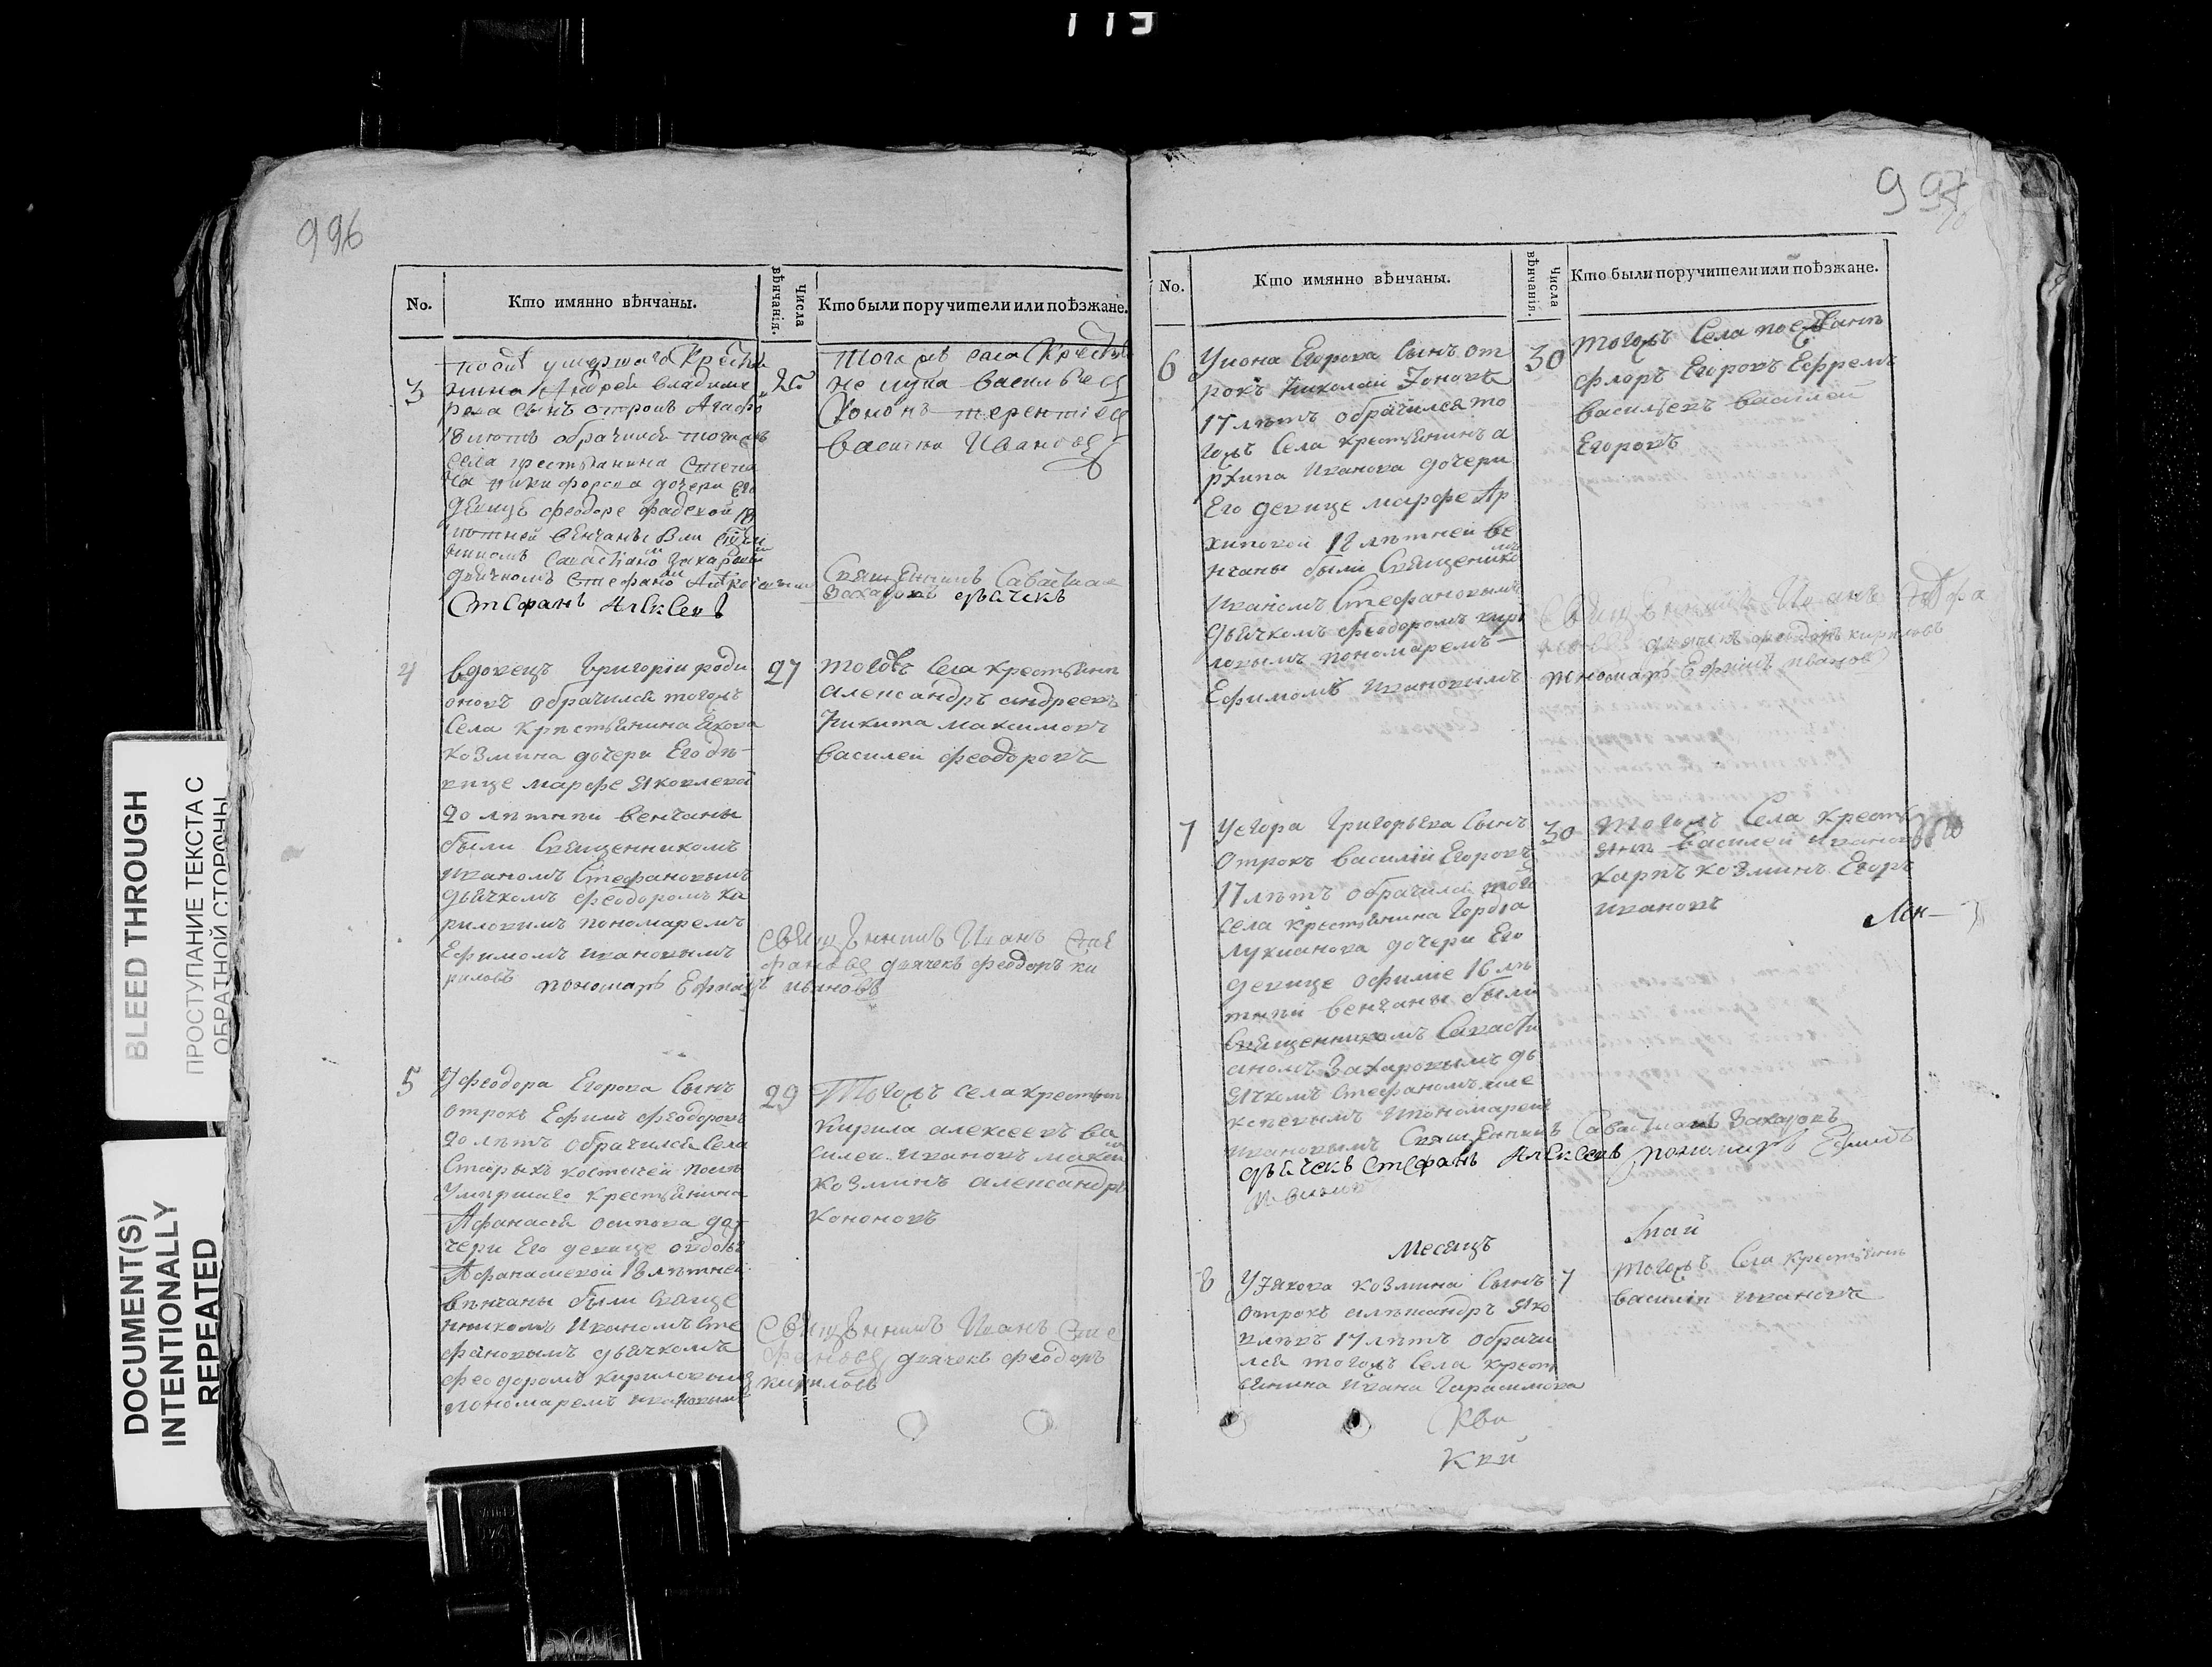 119
996
No.
Кто имянно вѣнчаны.
Числа вѣнчанія.
Кто были поручители или поѣзжане.
3
после умершаго Кресть
нина Андрея владиме
рова сынъ отрокъ Агафо
18 лѣтъ обрачился тогожъ
села крестьянина Степа
на никифорова дочери его
девицѣ феодоре 18
летней венчаны были
Савастiаномъ Захаровымъ
дьячкомъ Стефаномъ
Стефанъ Алексеевъ
25
Тогожъ села Кресть
не лука васильевъ
Кононъ терентiевъ
василей Ивановъ
Священникъ Савастиан
Захаровъ дьячекъ
4
вдовецъ Григорiи роди
оновъ обрачился тогожъ
Села Крестьянина Якова
Козмина дочери Его де
вице марфе Яковлевой
20 летнеи венчаны
были Священникомъ
иваномъ Стефановымъ
дьячкомъ феодоромъ ки
риловимъ пономаремъ
Ефимомъ ивановымъ
27
тогожъ Села крестьяни
александръ андреевъ
Никита максимовъ
василеи феодоровъ
Священникъ Иванъ Сте
фановъ дьячекъ феодоръ ки
риловъ пономарь Ефимъ ивановъ
5
У феодора Егорова Сынъ
отрокъ Ефимъ феодоровъ
20 лѣтъ обрачился Села
Старыхъ костычей после
Умершаго крестьянина
Афанасия осипова до
чери Его девице овдотье
Афанасиевой 18 летнеи
венчаны были Свяще
нникомъ Иваномъ Сте
фановымъ дьячкомъ
феодоромъ кириловымъ
пономаремъ ивановымъ
29
Тогожъ села крестьян
Кирила алексеевъ ва
силеи ивановъ
козминъ александръ
Кононовъ
Священникъ Иванъ Сте
фановъ дьячекъ феодоръ
кириловъ
997
No.
Кто имянно вѣнчаны.
Числа вѣнчанія.
Кто были поручители или поѣзжане.
6
У иона Егорова Сынъ от
рокъ Николаи Ионовъ
17 лѣтъ обрачился то
гожъ Села крестьянина а
рхипа Иванова дочери
Его девице марфе Ар
хиповой 18 летней ве
нчаны были Священико
Иваномъ Стефановымъ
дьячкомъ феодоромъ кири
ловымъ пономаремъ
Ефимомъ ивановимъ
30
тогожъ Села
флоръ Егоровъ Ефремъ
васильевъ василей
Егоровъ
Священникъ Иванъ
дьячекъ феодоръ кириловъ
пономарь Ефимъ ивановъ
7
У егора Григорьева Сынъ
Отрокъ василiй Егоровъ
17 лѣтъ обрачился того
села крестьянина
Лукианова дочери Его
девице офимiе 16 ле
тнеи венчаны были
Священникомъ Саваст
аномъ Захаровымъ дь
ячкомъ Стефаномъ але
ксеевымъ пономаремъ
ивановымъ Священникъ Савастианъ Захаровъ
дьячекъ Стефанъ Алексеевъ пономарь Ефимъ
Ивановъ
30
тогожъ Села крестьян
василей иванов
карпъ козминъ Егоръ
ивановъ
Месяцъ
май
8
У якова козмина Сынъ
отрокъ александръ Яко
влевъ 17 лѣтъ обрачи
лся тогожъ Села крест
ьянина ивана Гарасимова
7
тогожъ Села крестьянин
василiи ивановъ
BLEED THROUGH
ПРОСТУПАНИЕ ТЕКСТА С
ОБРАТНОЙ СТОРОНЫ
DOCUMENT(S)
INTENTIONALLY
REPEATED